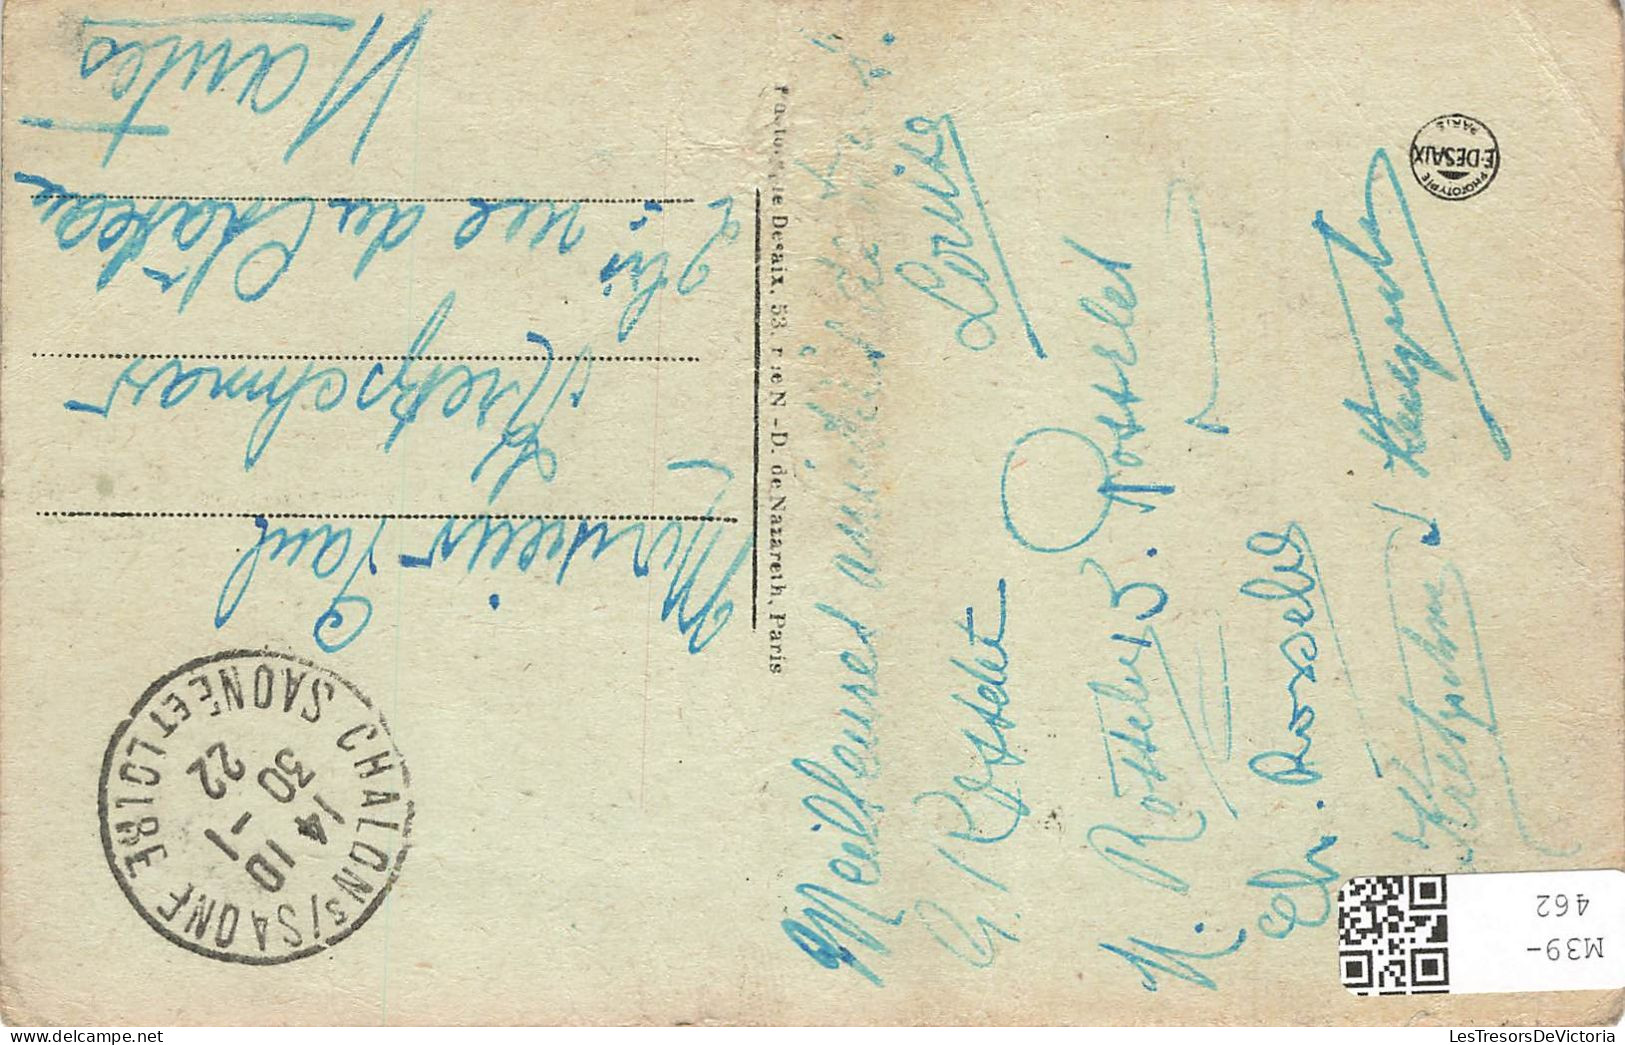 Meilleures amitiés à tous.
Louise
G. Rosselet
N. Rosselet B. Rosselet
Ch. Rosselet
Kretzschmar
Phototypie Desaix, 53, rue N.-D. de Nazareth, Paris
Monsieur Paul
Kretzschmar
2 bis rue du Château
Nantes
CHALON S/SAONE
SAONE ET LOIRE
14 10
30 -1
22
PHOTOTYPIE
E. DESAIX
PARIS
M39-
462
LesTresorsDeVictoria